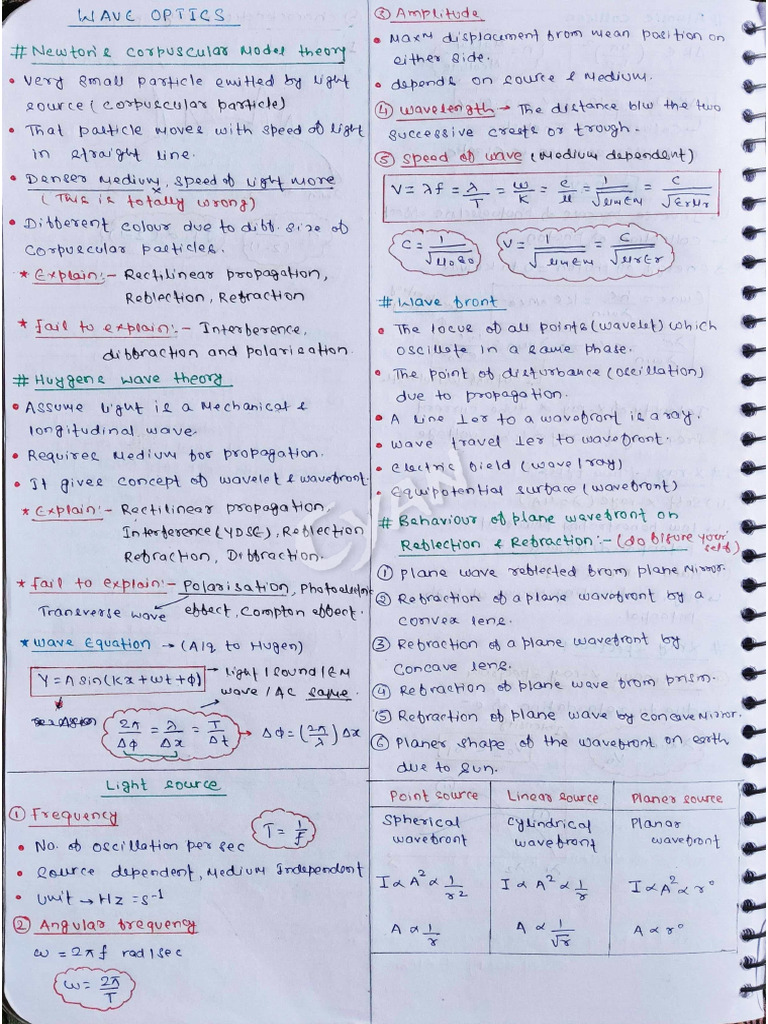 WAVE OPTICS
# Newton's Corpuscular Model theory
• Very Small Particle emitted by light
source (Corpuscular particle)
• That particle moves with speed of light
in straight line.
• Denser Medium, speed of light more
(This is totally wrong)
• Different colour due to diff. size of
Corpuscular particles.
* Explain:- Rectilinear propagation,
Reflection, Refraction
* fail to explain:- Interference,
diffraction and polarisation.
# Huygens wave theory
• Assume light is a Mechanical &
longitudinal wave.
• Requires Medium for propagation.
• It gives concept of wavelet & wavefront.
* Explain:- Rectilinear propagation
Interference (YDSE), Reflection
Refraction, Diffraction.
* fail to explain:- Polarisation, Photoelectric
Transverse wave effect, Compton effect.
* Wave Equation → (A/q to Hugen)
Y = A sin(Kx + wt + ϕ) → light/sound/EM
wave/AC same.
2π/Δϕ = λ/Δx = T/Δt → Δϕ = (2π/λ) Δx
Light source
① Frequency
T = 1/f
• No. of oscillation per sec
• Source dependent, Medium Independent
• Unit → Hz = s⁻¹
② Angular frequency
ω = 2πf rad/sec
ω = 2π/T
③ Amplitude
• Maxm displacement from mean position on
either side.
• depends on source & Medium.
④ Wavelength → The distance b/w the two
successive crests or trough.
⑤ Speed of wave (Medium dependent)
V = λf = λ/T = ω/K = c/μ = 1/√μmεm = C/√εrμr
C = 1/√μ0ε0
V = 1/√μmεm = C/√μrεr
# Wave front
• The locus of all points (wavelet) which
oscillate in a same phase.
• The point of disturbance (oscillation)
due to propagation.
• A line ⊥er to a wavefront is a ray.
• Wave travel ⊥er to wavefront.
• Electric field (wave/ray)
• Equipotential surface (wavefront)
# Behaviour of plane wavefront on
Reflection & Refraction:- (do figure your
self)
① Plane wave reflected from plane Mirror.
② Refraction of a plane wavefront by a
convex lens.
③ Refraction of a plane wavefront by
Concave lens.
④ Refraction of plane wave from prism.
⑤ Refraction of plane wave by concave Mirror.
⑥ Planer shape of the wavefront on earth
due to sun.
Point source Linear source Planer source
Spherical wavefront Cylindrical wavefront Planar wavefront
I ∝ A² ∝ 1/r² I ∝ A² ∝ 1/r I ∝ A² ∝ r⁰
A ∝ 1/r A ∝ 1/√r A ∝ r⁰
CYAN